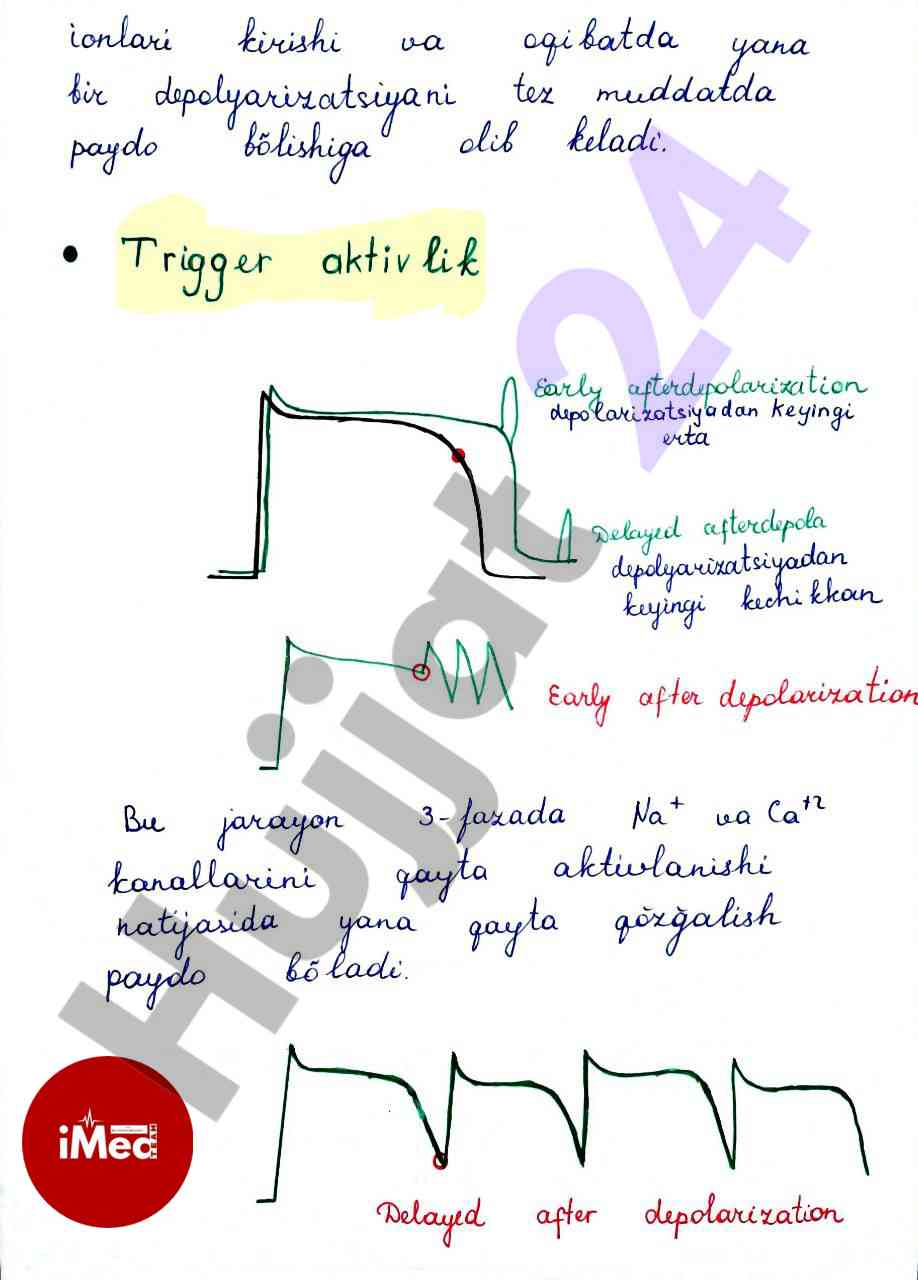 ionlari kirishi va oqibatda yana
bir depolyarizatsiyani tez muddatda
paydo bõlishiga olib keladi.
• Trigger aktivlik
Early afterdepolarization
depolarizatsiyadan keyingi
erta
Delayed afterdepola
depolyarizatsiyadan
keyingi kechikkan
Early after depolarization
Bu jarayon 3-fazada Na⁺ va Ca⁺²
kanallarini qayta aktivlanishi
natijasida yana qayta qõzğalish
paydo bõladi.
Delayed after depolarization
Hujjat 24
iMed
TEAM